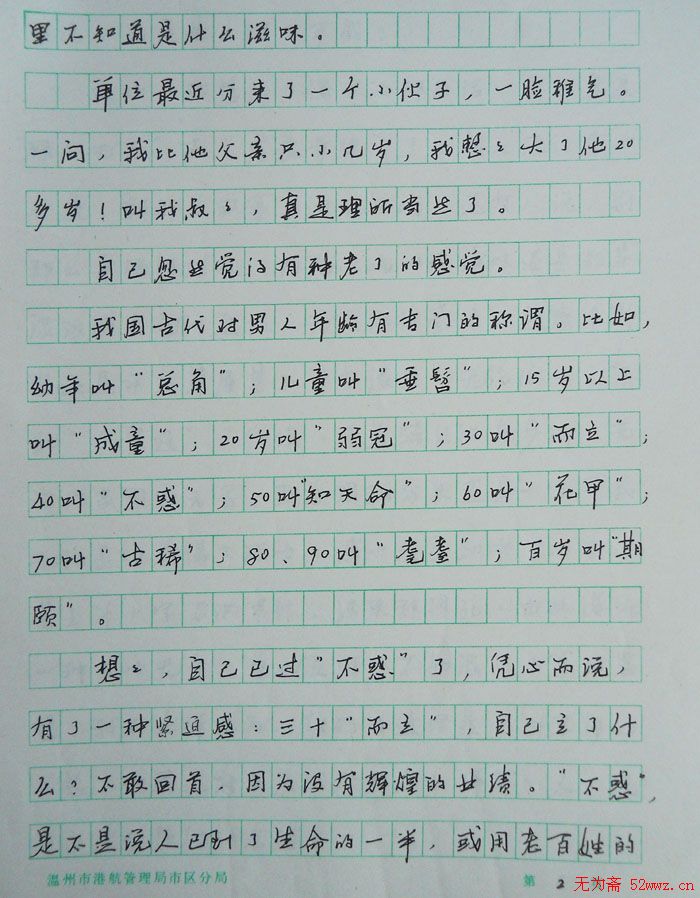 里不知道是什么滋味。
单位最近分来了一个小伙子，一脸稚气。
一问，我比他父亲只小几岁，我想々大了他20
多岁！叫我叔々，真是理所当然了。
自己忽然觉得有种老了的感觉。
我国古代对男人年龄有专门的称谓。比如，
幼年叫“总角”；儿童叫“垂髫”；15岁以上
叫“成童”；20岁叫“弱冠”；30叫“而立”；
40叫“不惑”；50叫“知天命”；60叫“花甲”；
70叫“古稀”；80、90叫“耄耋”；百岁叫“期
颐”。
想々，自己已过“不惑”了，凭心而说，
有了一种紧迫感：三十“而立”，自己立了什
么？不敢回首，因为没有辉煌的业绩。“不惑”，
是不是说人已到了生命的一半，或用老百姓的
温州市港航管理局市区分局 第 2
无为斋 52wwz.cn